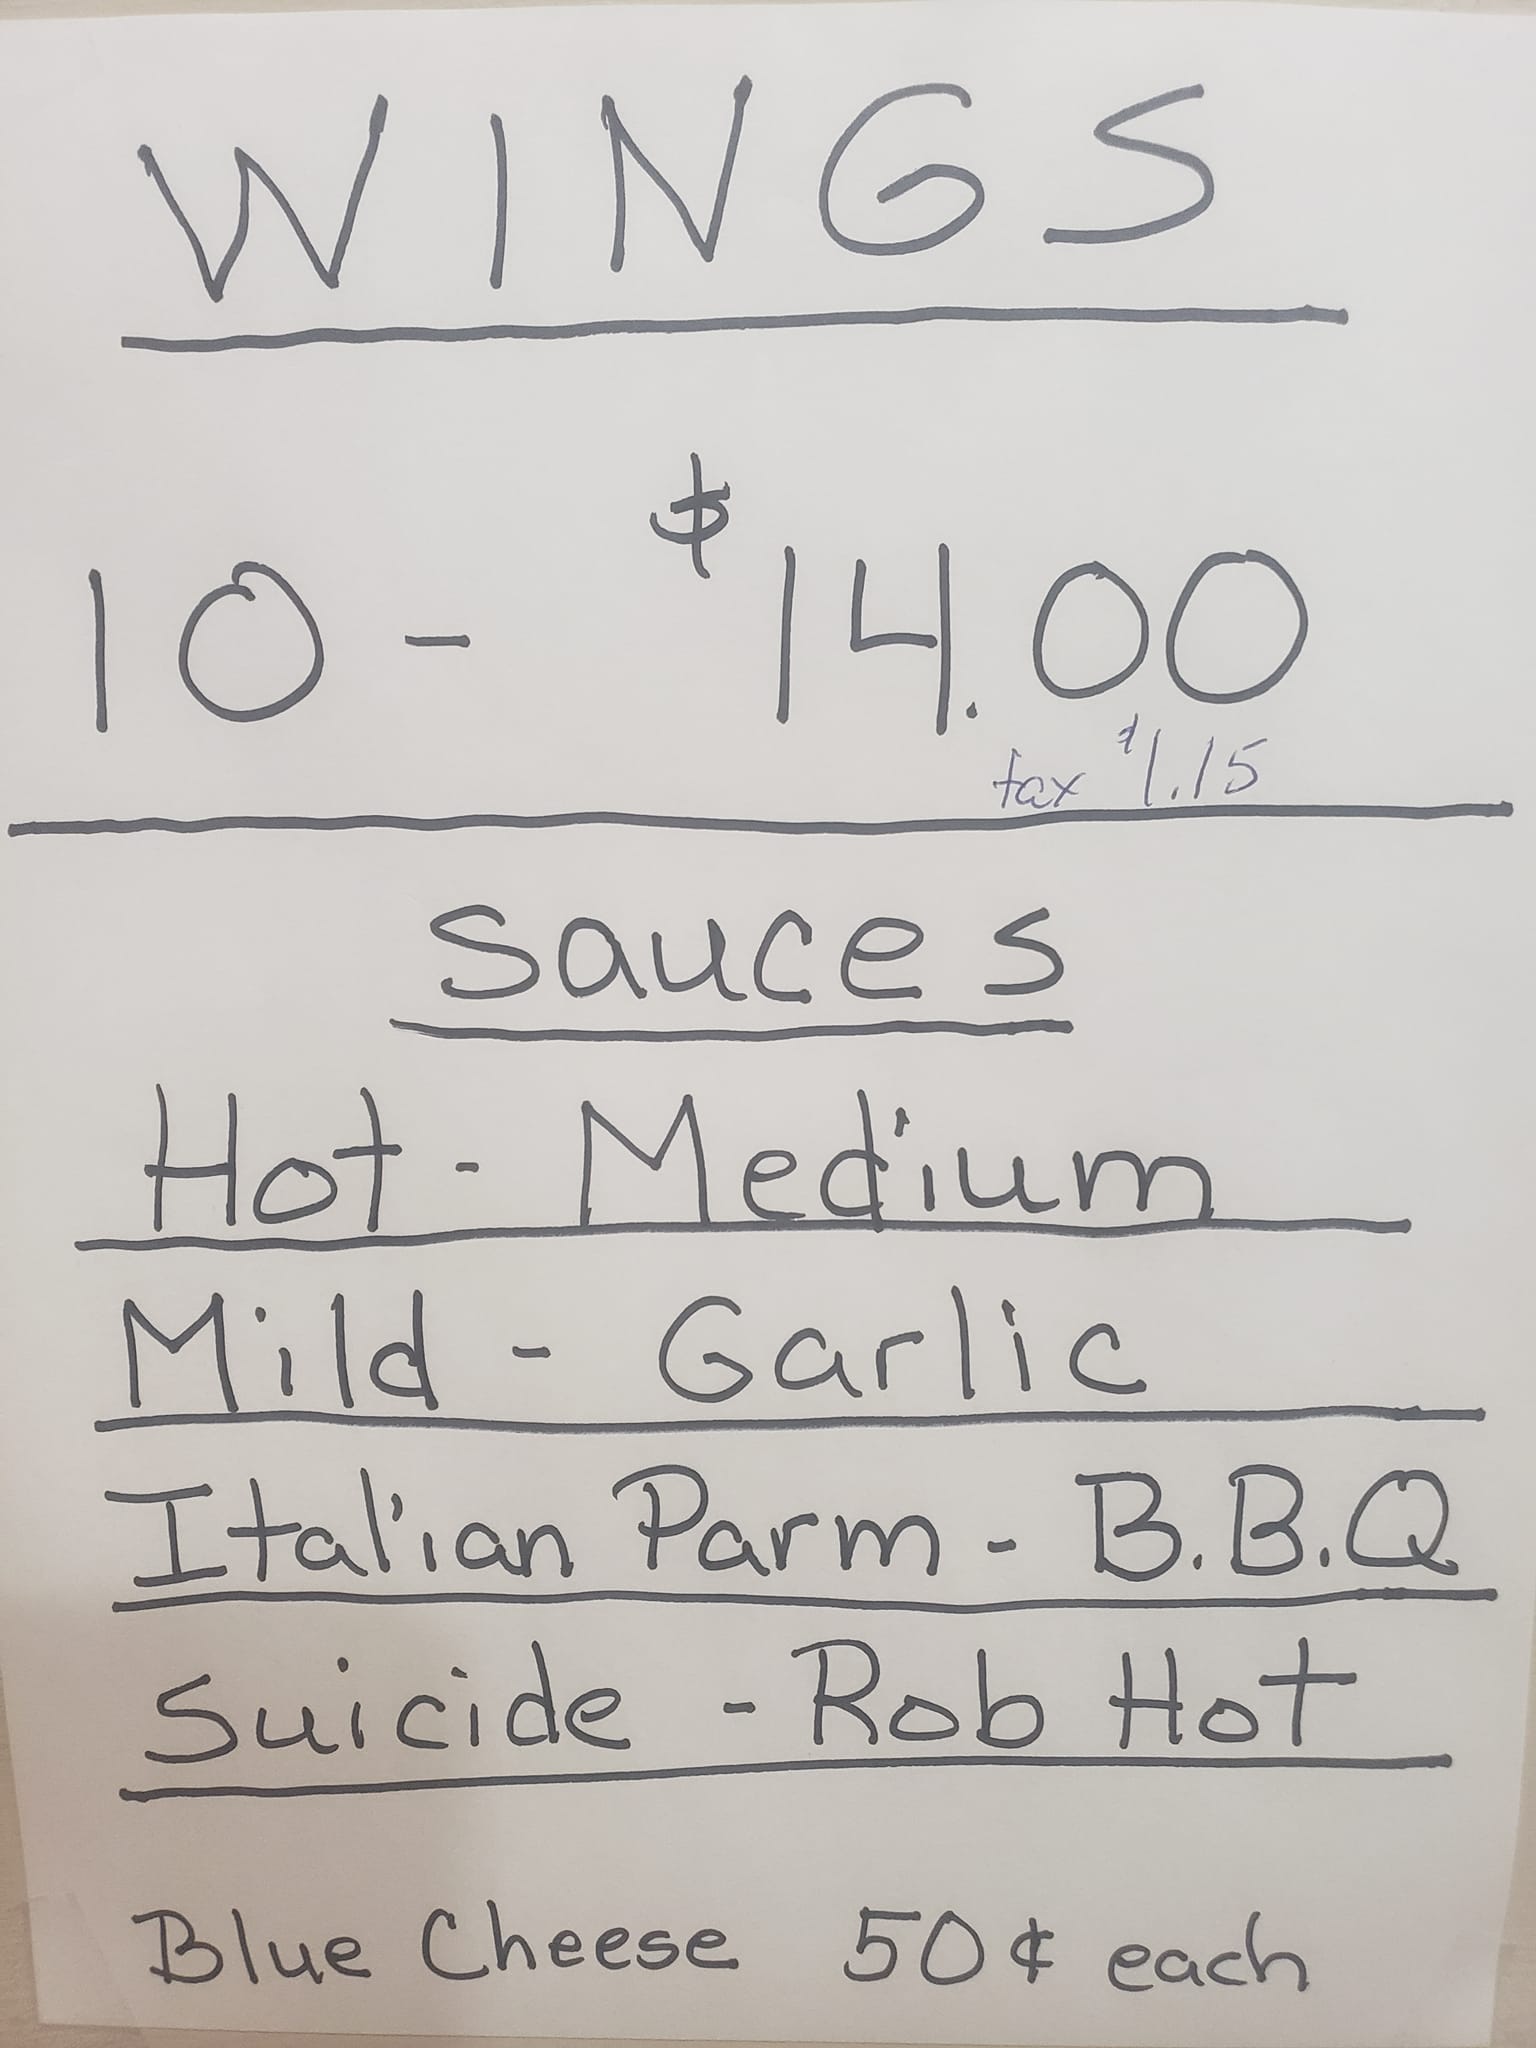 WINGS
10 - $14.00
tax $1.15
Sauces
Hot - Medium
Mild - Garlic
Italian Parm - B.B.Q
Suicide - Rob Hot
Blue Cheese 50¢ each